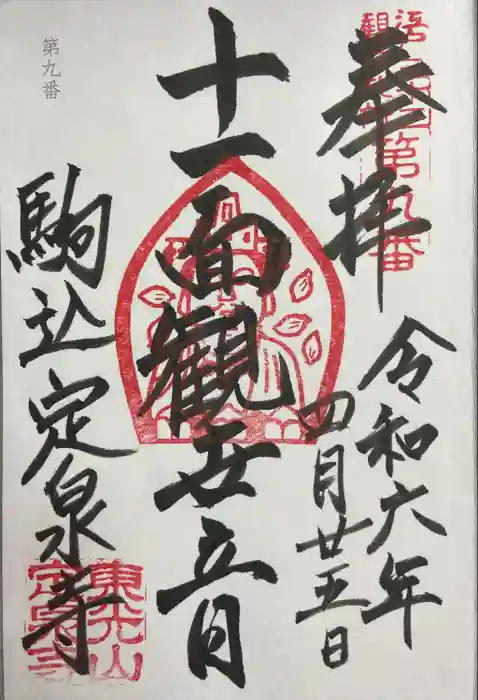 奉拝
令和六年
四月廿五日
十一面観世音
駒込定泉寺
第九番
第九番
東光山
定泉寺